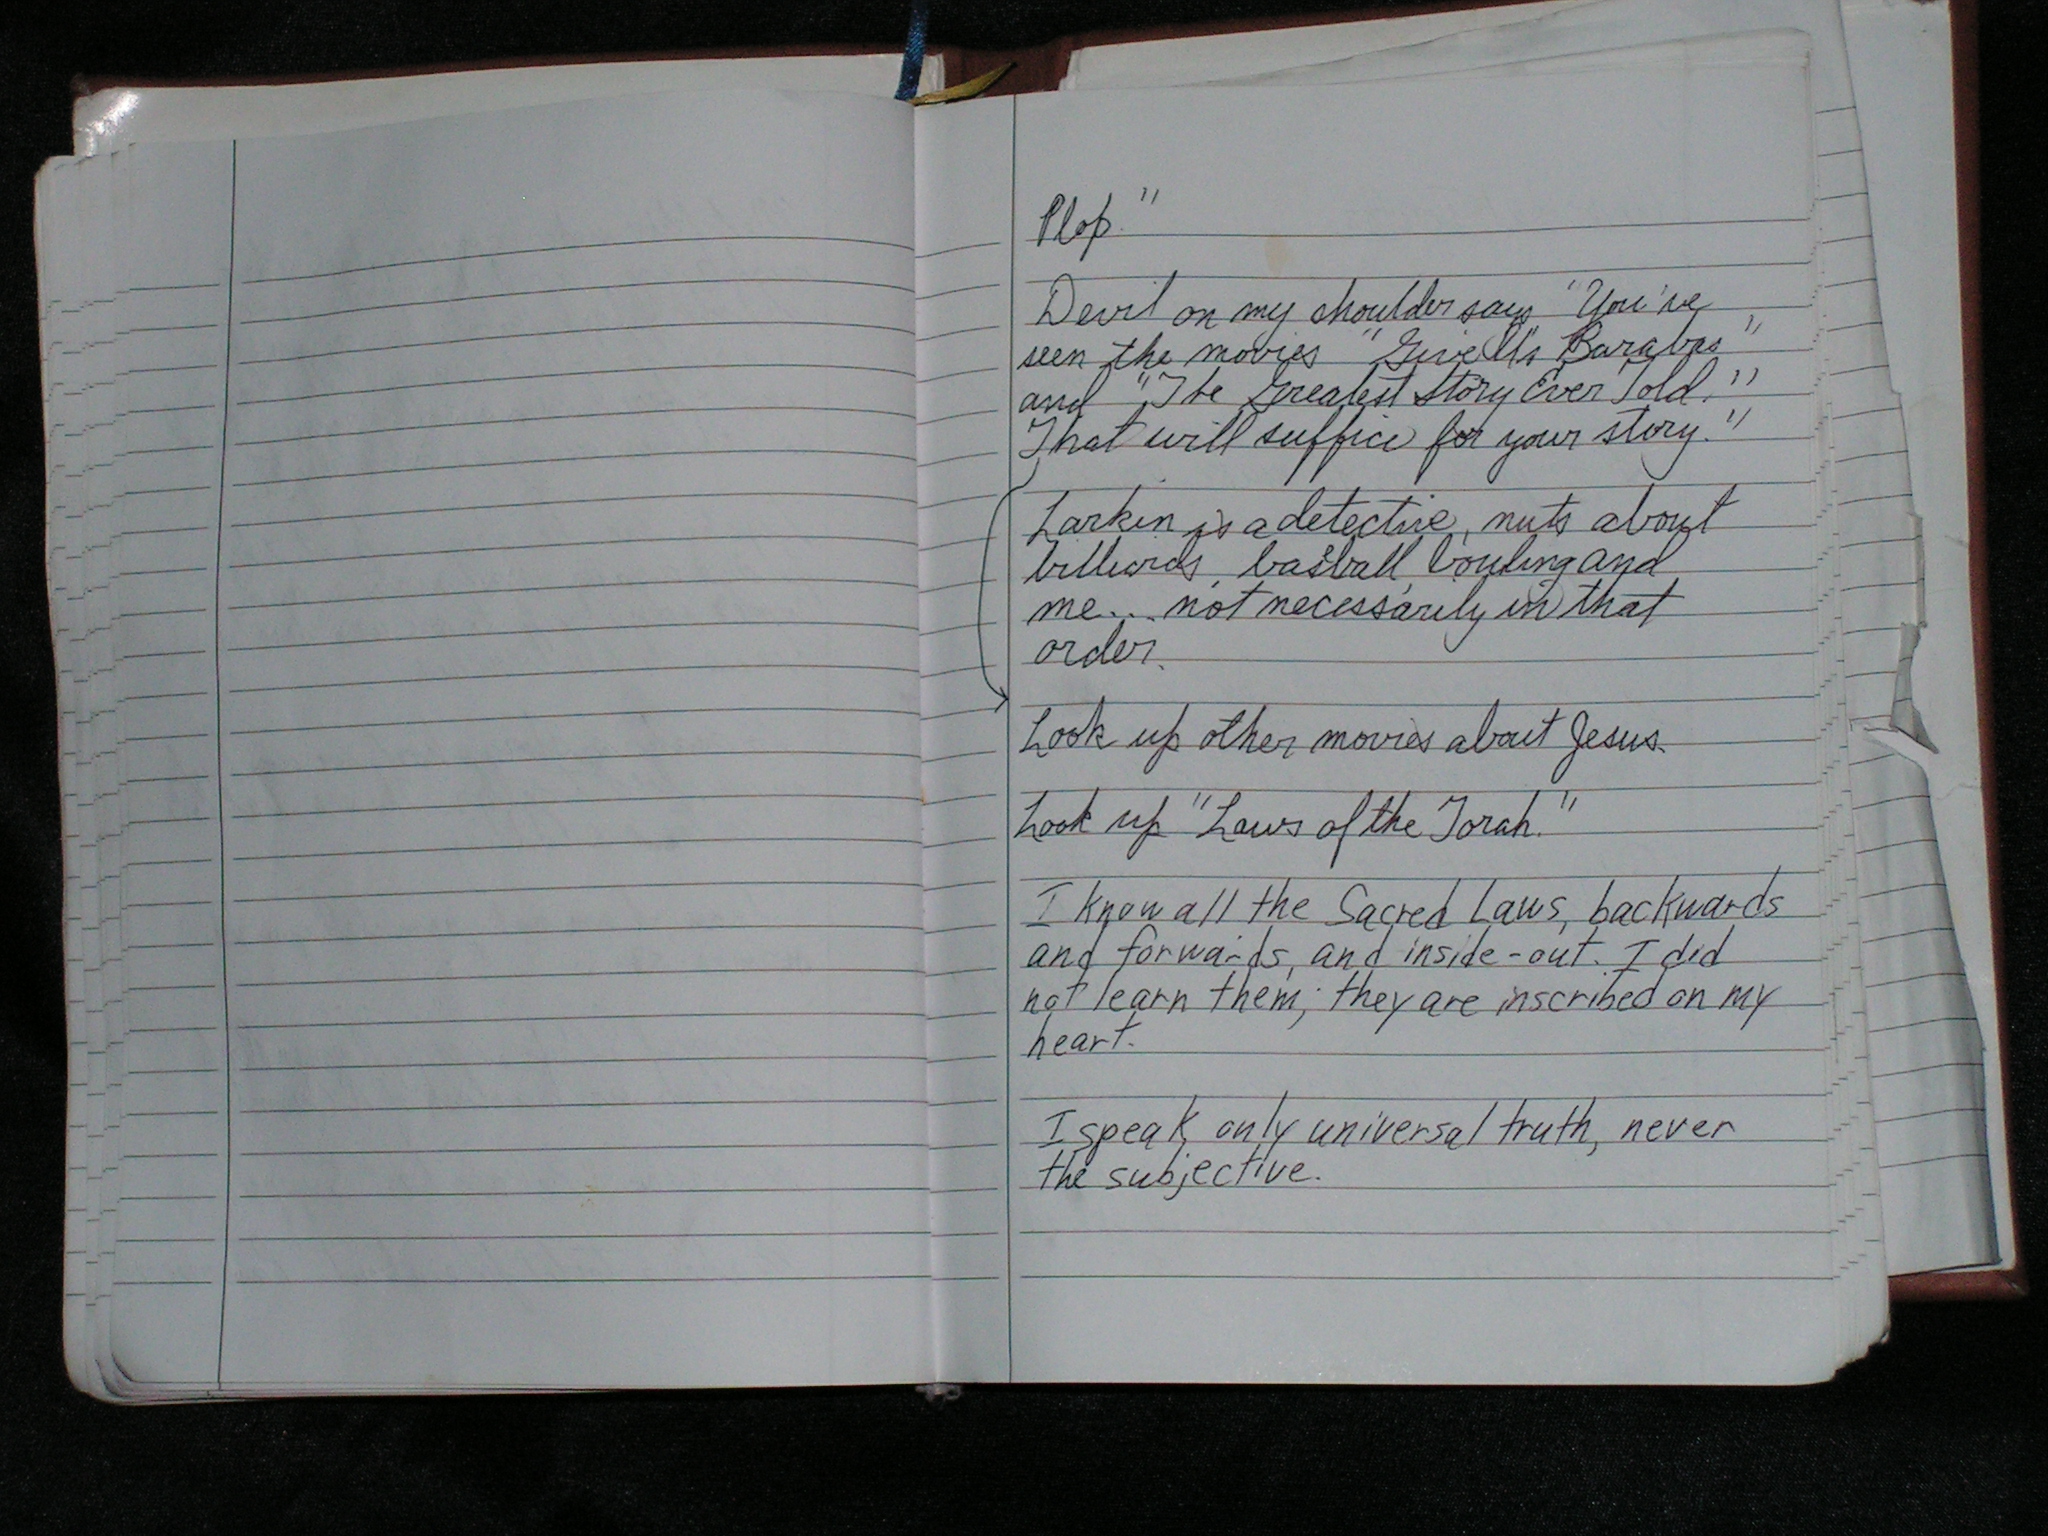 Plop."
Devil on my shoulder says "You've
seen the movies "Give Us Barabas"
and "The Greatest Story Ever Told."
That will suffice for your story."
Larkin is a detective, nuts about
billiards, basball, bowling and
me... not necessarily in that
order.
Look up other movies about Jesus.
Look up "Laws of the Torah."
I know all the Sacred Laws, backwards
and forwards, and inside-out. I did
not learn them; they are inscribed on my
heart.
I speak only universal truth, never
the subjective.